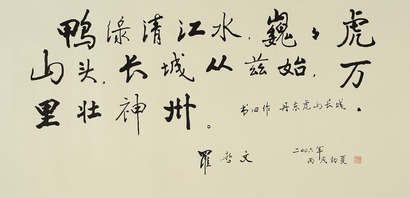 鸭绿清江水，巍々虎
山头，长城从兹始，万
里壮神州。
书旧作 丹东虎山长城
罗哲文
二〇〇六年
丙戌初夏